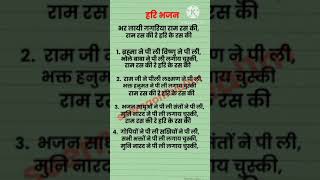 हरि भजन
भर लायी गगरिया राम रस की,
राम रस की रे हरि के रस की
1. ब्रह्मा ने पी ली विष्णु ने पी ली,
भोले बाबा ने पी ली लगाय चुस्की,
राम रस की रे हरि के रस की
2. राम जी ने पीली लक्ष्मण ने पी ली,
भक्त हनुमत ने पी ली लगाय चुस्की
राम रस की रे हरि के रस की
3. भजन साधुओं ने पी ली संतों ने पी ली,
मुनि नारद ने पी ली लगाय चुस्की,
राम रस की रे हरि के रस की
4. गोपियों ने पी ली सखियों ने पी ली,
सभी भक्तों ने पी ली लगाय चुस्की,
राम रस की रे हरि के रस की
2.
राम जी
भक्त हनुम
राम र
3. भजन सा
मुनि नार
ने पी ली,
चुस्की
की
तों ने पी ली,
चुस्की,